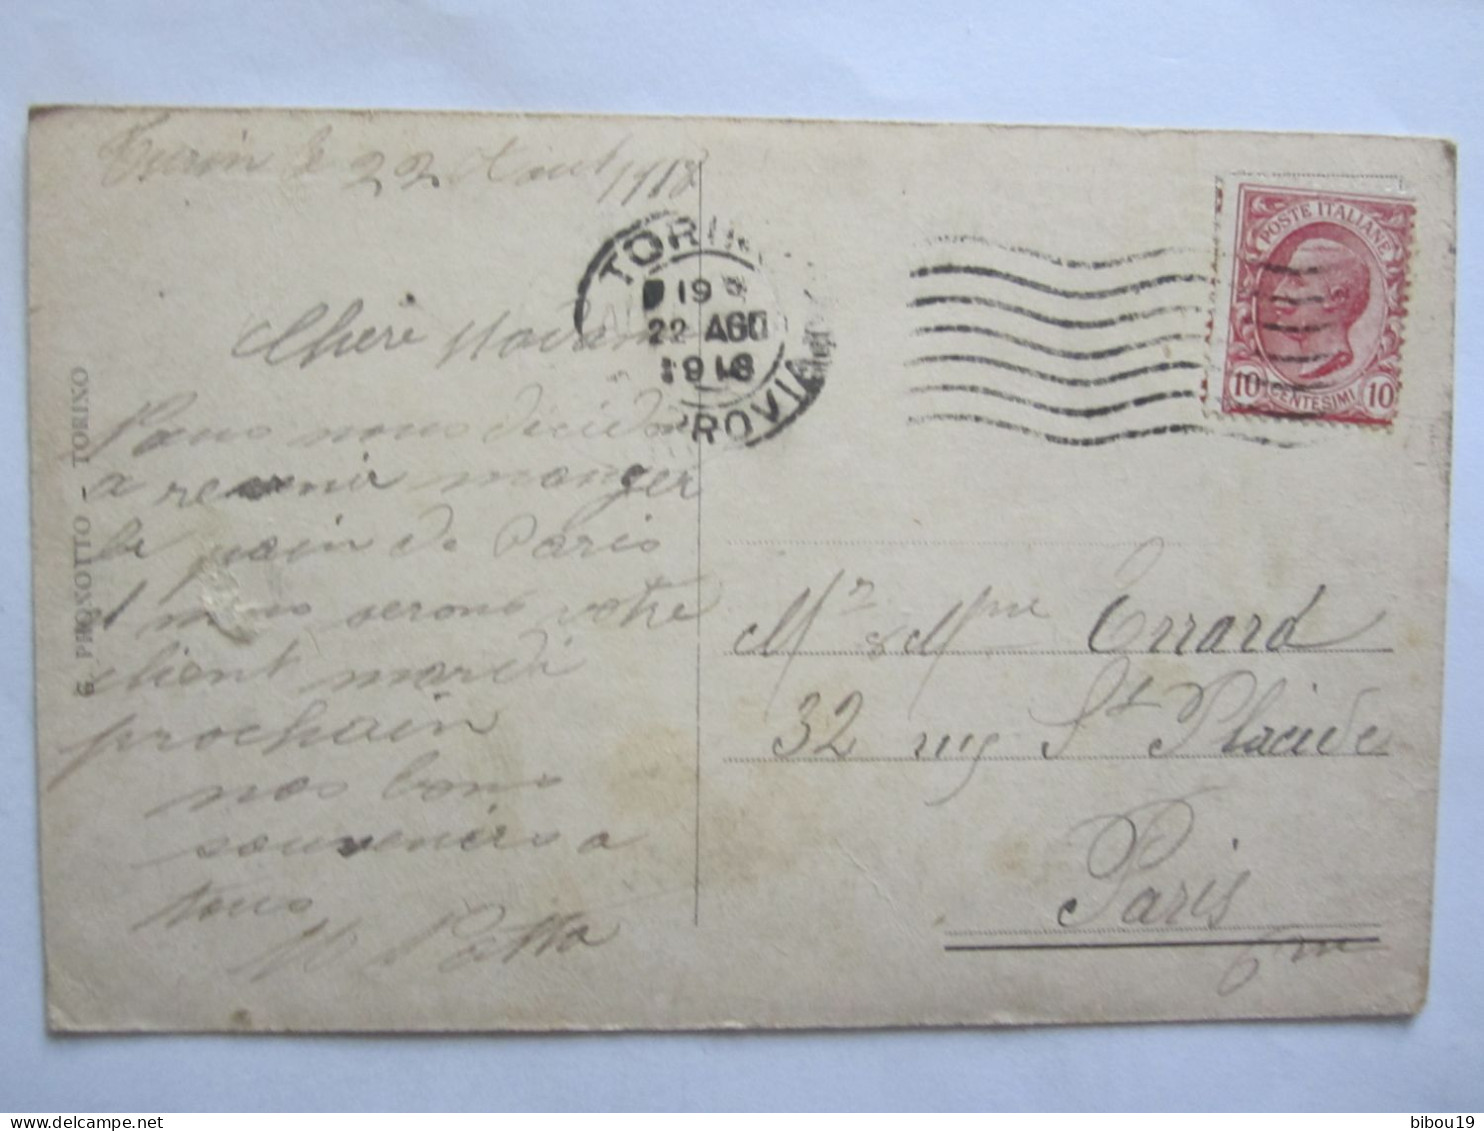 Turin le 22 Aout 1918
Chère Madame
Nous nous décidons
a revenir manger
le pain de Paris
nous serons votre
client mardi
prochain
nos bons
souvenirs a
tous
G. PRONOTTO - TORINO
TORINO
19
22 AGO
1918
FERROVIA
POSTE ITALIANE
10 CENTESIMI 10
Mr & Mme Errard
32 rue St Placide
Paris
6me
bibou19